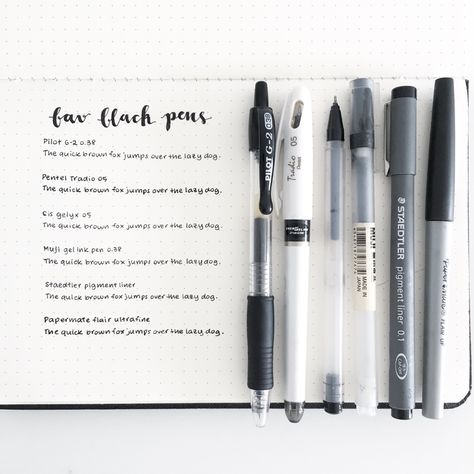 fav black pens
Pilot G-2 0.38
The quick brown fox jumps over the lazy dog.
Pentel Tradio 05
The quick brown fox jumps over the lazy dog.
Sis gelyx 05
The quick brown fox jumps over the lazy dog.
Muji gel ink pen 0.38
The quick brown fox jumps over the lazy dog.
Staedtler pigment liner
The quick brown fox jumps over the lazy dog.
Papermate flair ultrafine
The quick brown fox jumps over the lazy dog.
PILOT G-2 0.38
Tradio 05
Pentel
MADE IN
JAPAN
STAEDTLER
pigment liner 0.1